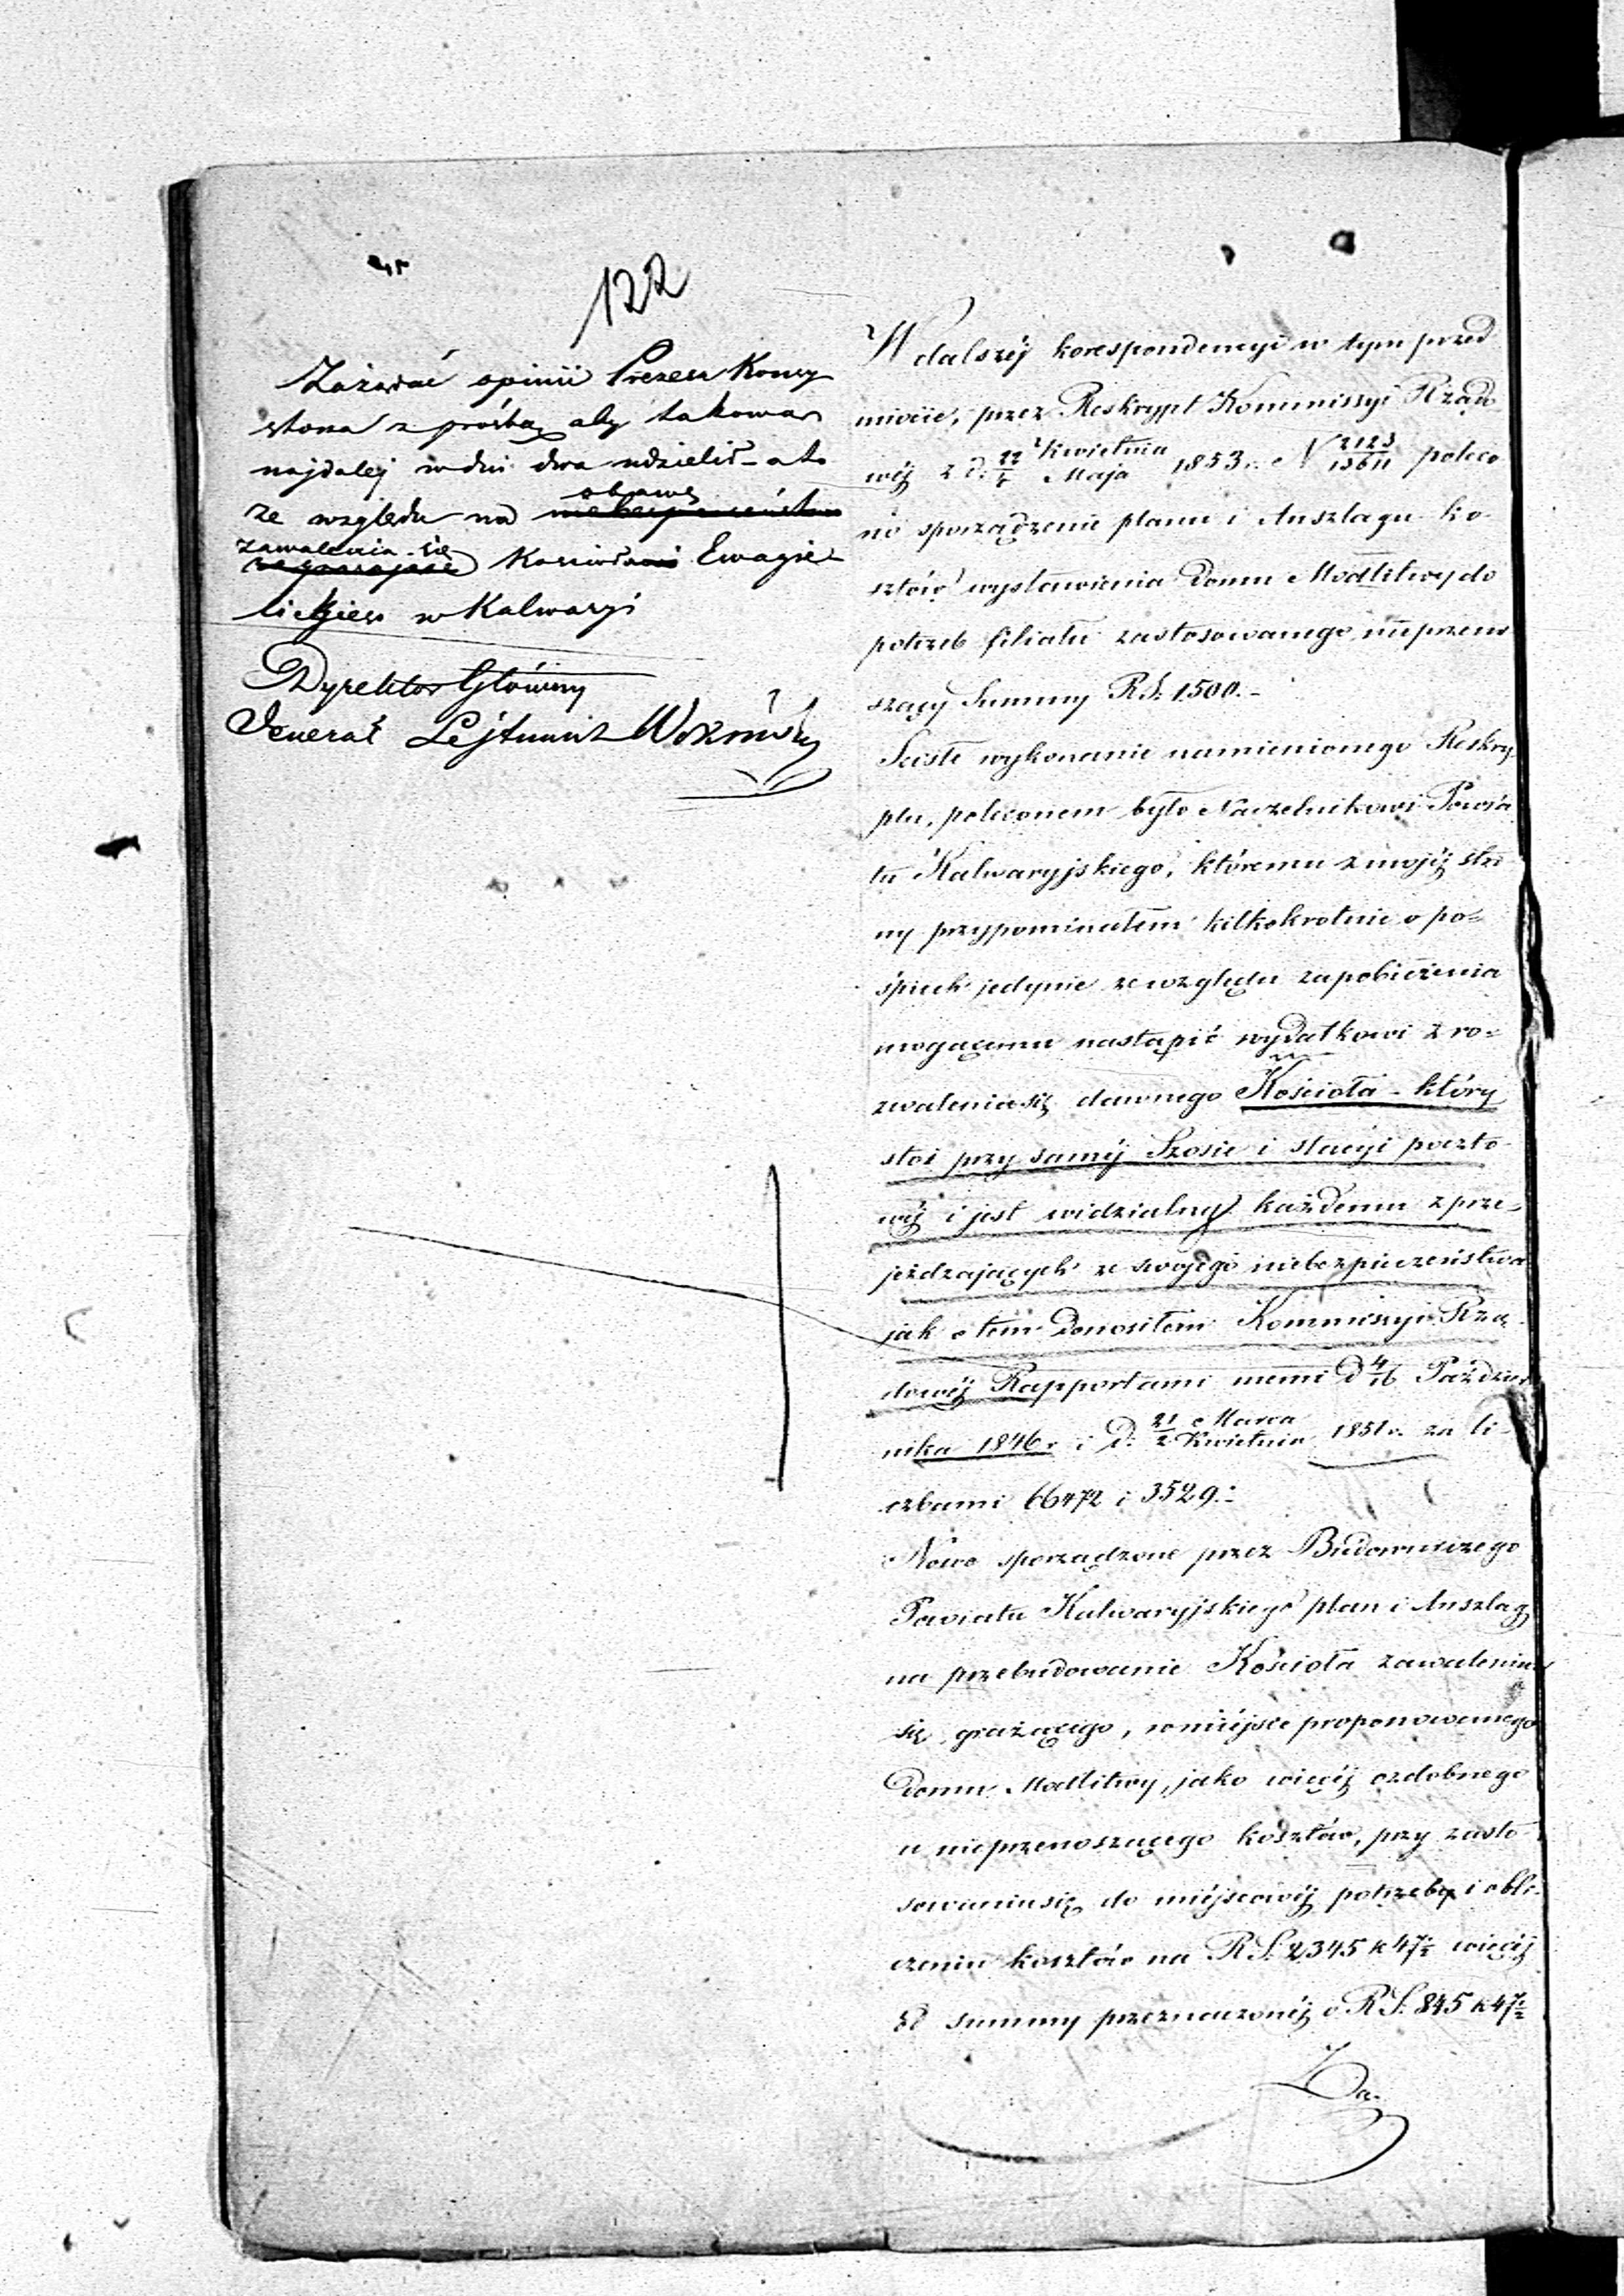 122
Zażądać opinii Prezesa Konsy
stora z prośbą aby takowa
najdalej w dni dwa udzielił - a to
ze względu na obawę
zawalenia się Kościoła Ewagie
lickiego w Kalwaryi
Dyrektor Główny
Jenerał Lejtnant
W dalszéj korespondencyi w tym przed
miocie, przez Reskrypt Kommissyi Rządo
wéj z d. 22 Kwietnia / 4 Maja 1853 r. N 2123/13611 poleco
no sporządzenie planu i Anszlagu ko-
sztów wystawienia Domu Modlitwy do
potrzeb filiału zastosowanego, nieprzeno
szący Summy RS. 1500.-
Ścisłe wykonanie namienionego Reskry-
ptu, poleconem było Naczelnikowi Powia
tu Kalwaryjskiego, któremu z mojéj stro
ny przypominałem kilkokrotnie o po-
śpiech jedynie ze względu zapobieżenia
mogącemu nastąpić wydatkowi z ro-
zwalenia się dawnego Kościoła - który
stoi przy saméj Szosie i stacyi poczto
wéj i jest widzialny każdemu z prze-
jeżdzających ze swojego niebezpieczeństwa
jak o tém donosiłem Kommissyi Rzą-
dowéj Rapportami memi d 4/16 Paździer
nika 1846 r. i d. 21 Marca / 2 Kwietnia 1851 r. za li-
czbami 66472 i 3529.-
Nowo sporządzone przez Budowniczego
Powiatu Kalwaryjskiego plan i Anszlag
na przebudowanie Kościoła zawaleniem
się grożącego, w miéjsce proponowanego
Domu Modlitwy, jako więcéj ozdobnego
a nieprzenoszącego kosztów, przy zasto
sowaniu się do miéjscowéj potrzeby i obli-
czeniu kosztów na RS. 2345 k 47½ więcéj
od summy przeznaczonéj o RS. 845 k 47½
Za-